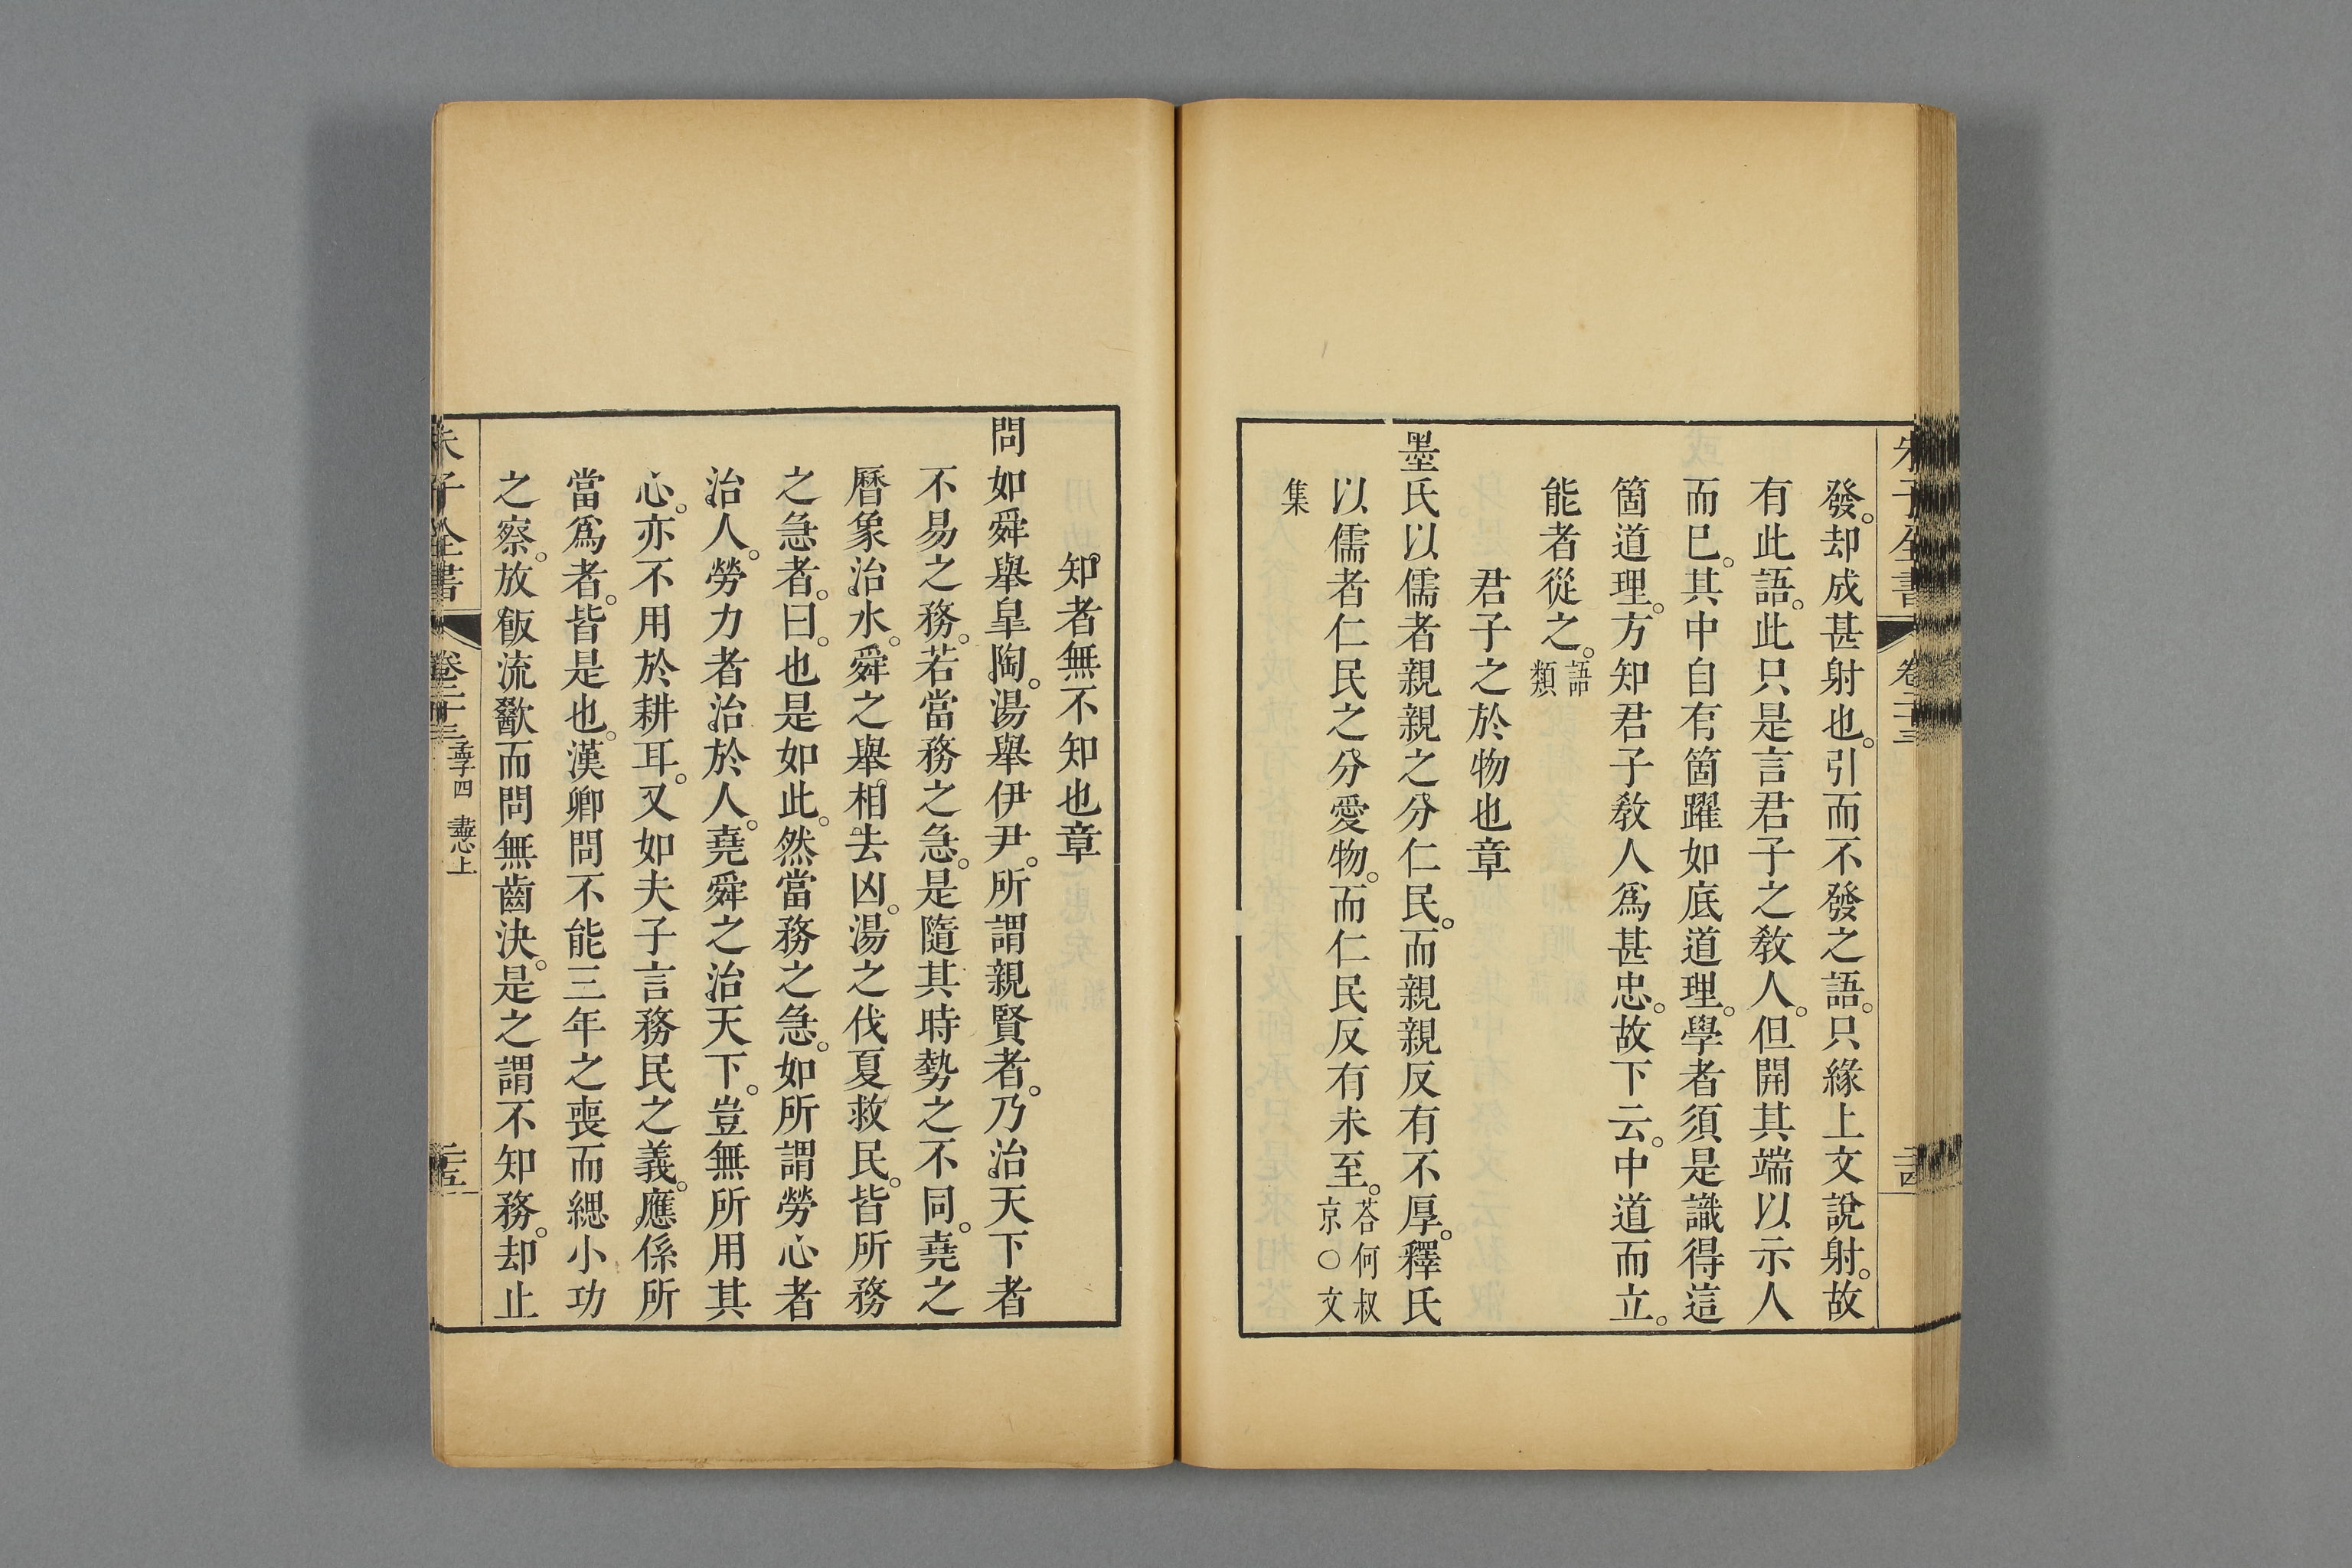 發。却成甚射也。引而不發之語。只緣上文說射。故
有此語。此只是言君子之敎人。但開其端以示人
而已。其中自有箇躍如底道理。學者須是識得這
箇道理。方知君子敎人爲甚忠。故下云。中道而立。
能者從之。語類
君子之於物也章
墨氏以儒者親親之分仁民。而親親反有不厚。釋氏
以儒者仁民之分愛物。而仁民反有未至。荅何叔京○文
集
知者無不知也章
問如舜舉皐陶。湯舉伊尹。所謂親賢者。乃治天下者
不易之務。若當務之急。是隨其時勢之不同。堯之
曆象治水。舜之舉相去凶。湯之伐夏救民。皆所務
之急者。曰。也是如此。然當務之急。如所謂勞心者
治人。勞力者治於人。堯舜之治天下。豈無所用其
心。亦不用於耕耳。又如夫子言務民之義。應係所
當爲者。皆是也。漢卿問不能三年之喪而緦小功
之察。放飯流歠而問無齒決。是之謂不知務。却止
朱子全書
卷二十三 孟子四 盡心上
二十五